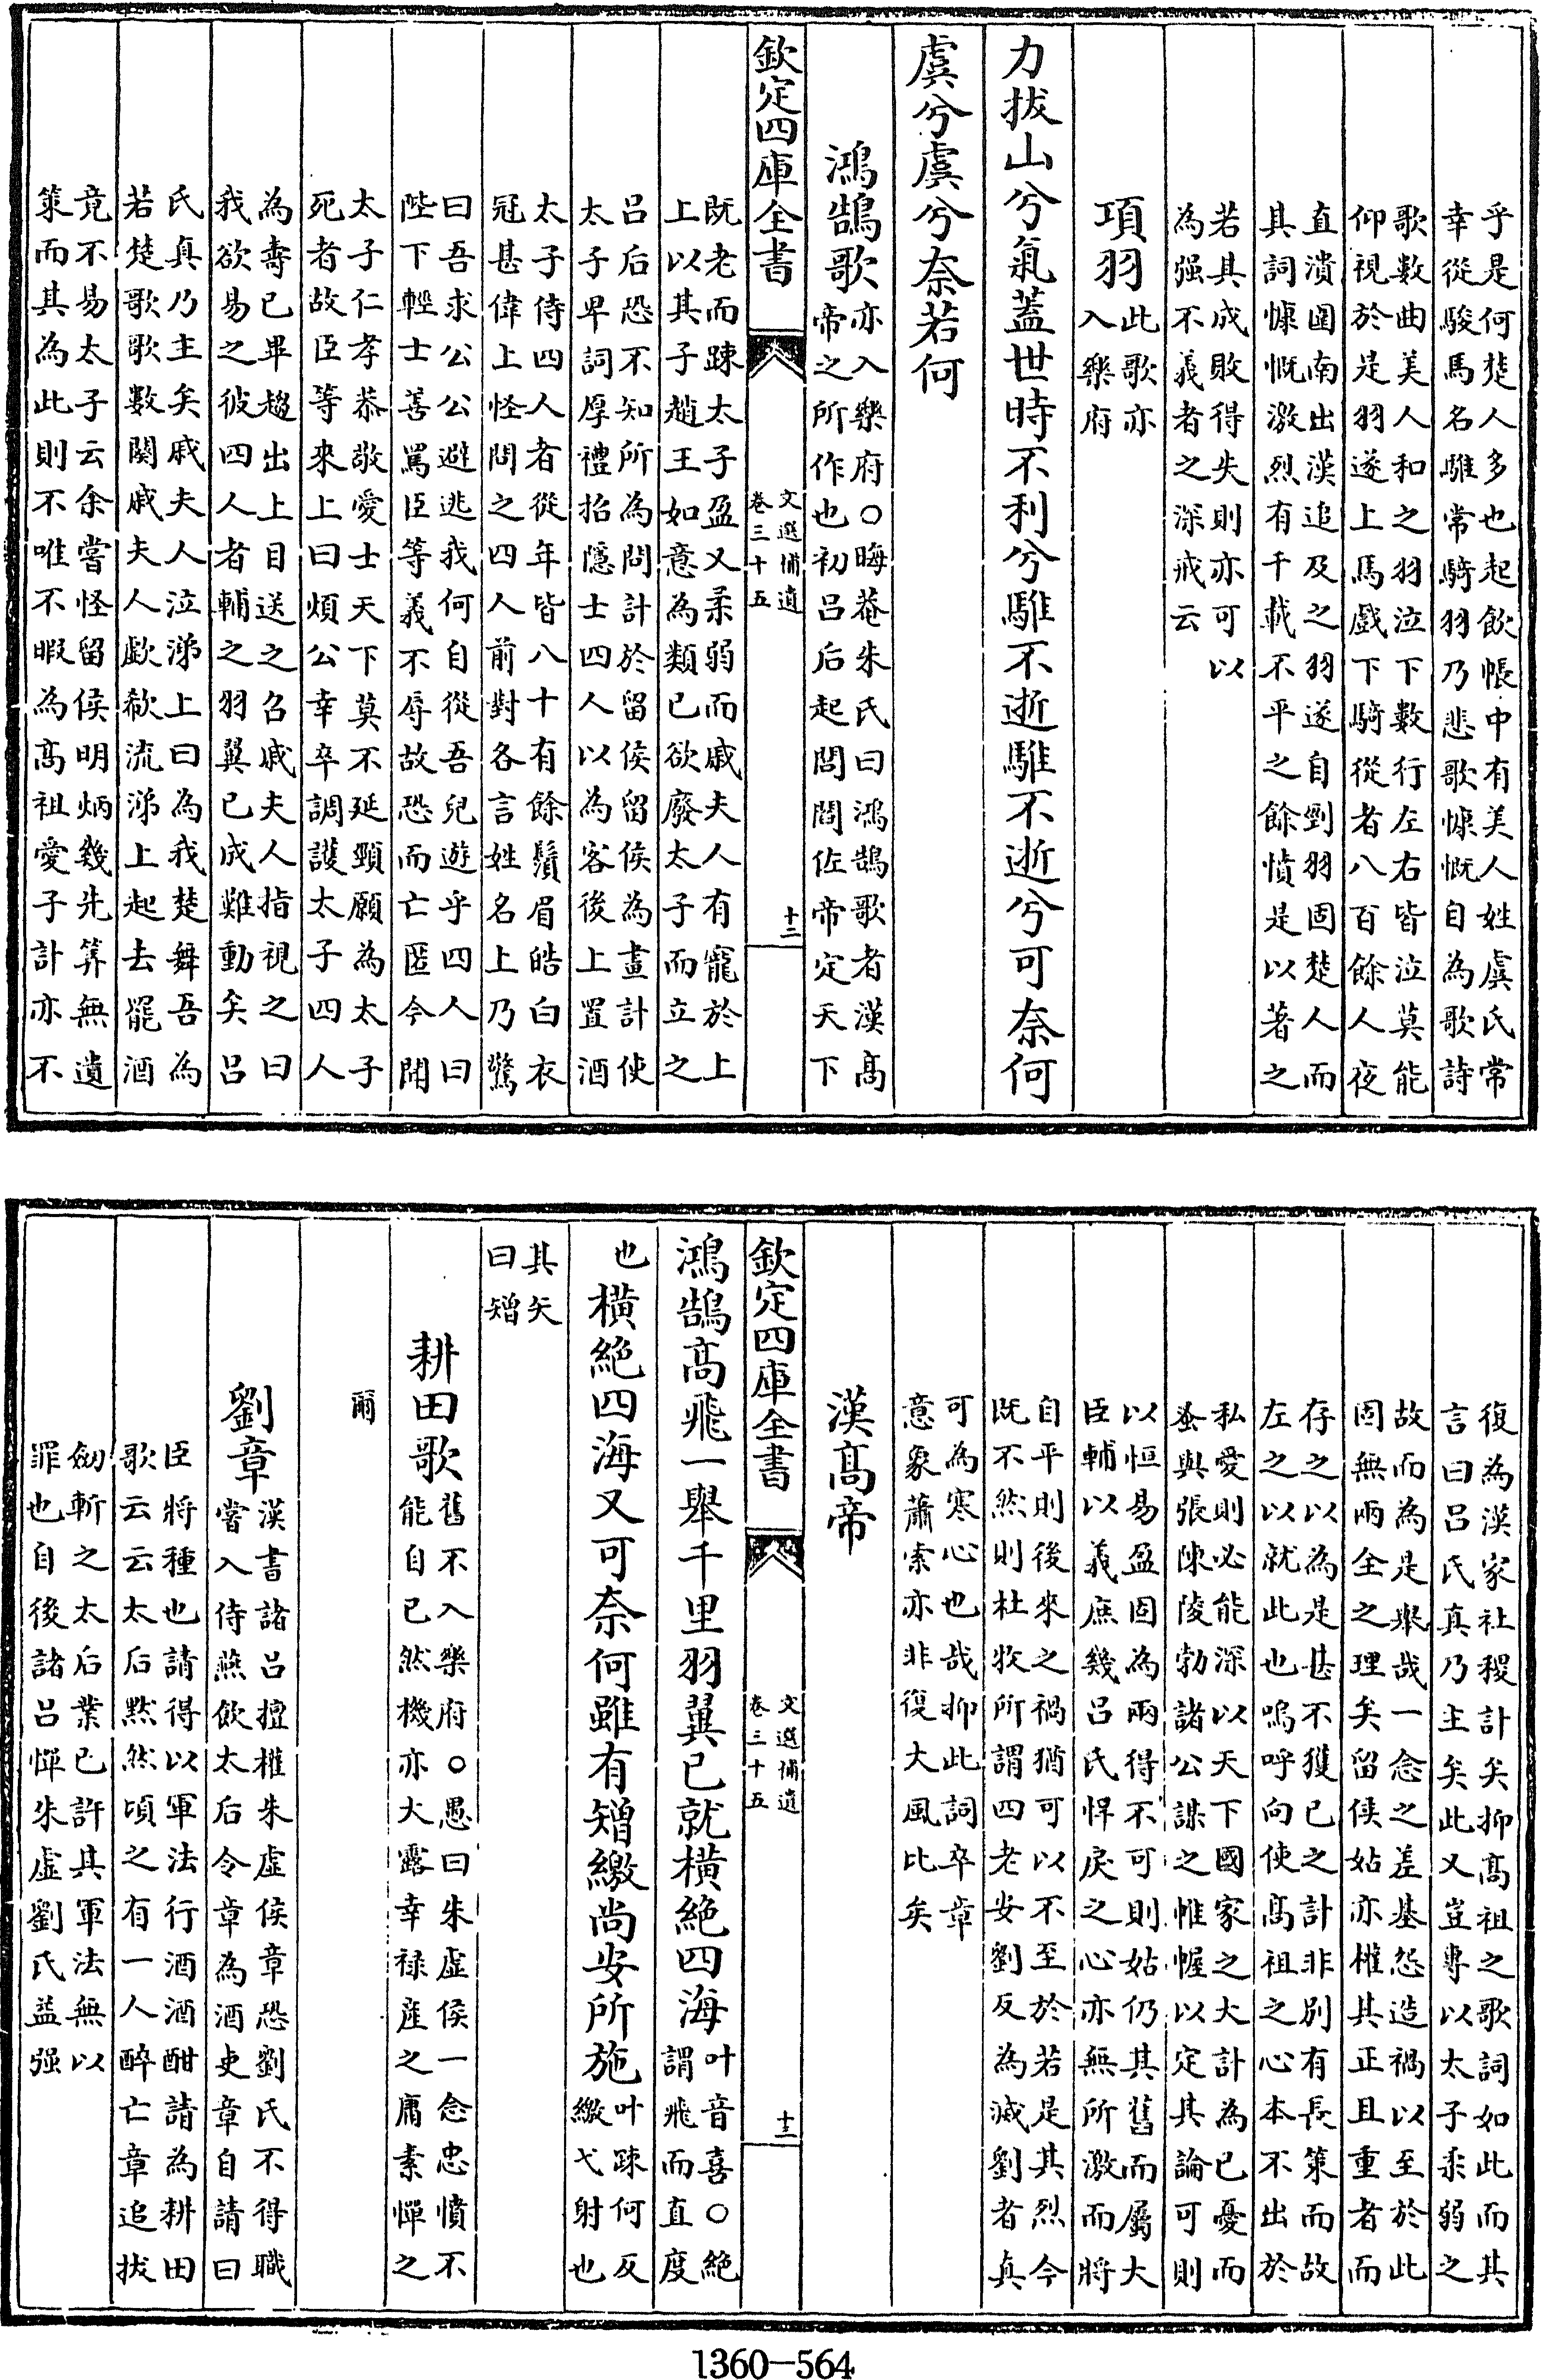 乎是何楚人多也起飲帳中有美人姓虞氏常
幸從駿馬名騅常騎羽乃悲歌慷慨自為歌詩
歌數曲美人和之羽泣下數行左右皆泣莫能
仰視於是羽遂上馬戲下騎從者八百餘人夜
直潰圍南出漢追及之羽遂自剄羽固楚人而
其詞慷慨激烈有千載不平之餘憤是以著之
若其成敗得失則亦可以
為强不義者之深戒云
項羽此歌亦
入樂府
力拔山兮氣蓋世時不利兮騅不逝騅不逝兮可奈何
虞兮虞兮奈若何
鴻鵠歌亦入樂府○晦菴朱氏曰鴻鵠歌者漢髙
帝之所作也初呂后起閭閻佐帝定天下
欽定四庫全書
文選補遺
卷三十五
十二
既老而踈太子盈又柔弱而戚夫人有寵於上
上以其子趙王如意為類已欲廢太子而立之
呂后恐不知所為問計於留侯留侯為畫計使
太子卑詞厚禮招隱士四人以為客後上置酒
太子侍四人者從年皆八十有餘鬚眉皓白衣
冠甚偉上怪問之四人前對各言姓名上乃驚
曰吾求公公避逃我何自從吾兒遊乎四人曰
陛下輕士善罵臣等義不辱故恐而亡匿今聞
太子仁孝恭敬愛士天下莫不延頸願為太子
死者故臣等來上曰煩公幸卒調護太子四人
為壽已畢趨出上目送之召戚夫人指視之曰
我欲易之彼四人者輔之羽翼已成難動矣呂
氏真乃主矣戚夫人泣涕上曰為我楚舞吾為
若楚歌歌數闋戚夫人歔欷流涕上起去罷酒
竟不易太子云余嘗怪留侯明炳幾先筭無遺
策而其為此則不唯不暇為髙祖愛子計亦不
復為漢家社稷計矣抑髙祖之歌詞如此而其
言曰呂氏真乃主矣此又豈專以太子柔弱之
故而為是舉哉一念之差基怨造禍以至於此
固無兩全之理矣留侯姑亦權其正且重者而
存之以為是甚不獲已之計非别有長策而故
左之以就此也嗚呼向使髙祖之心本不出於
私愛則必能深以天下國家之大計為已憂而
蚤與張陳陵勃諸公謀之帷幄以定其論可則
以恒易盈固為兩得不可則姑仍其舊而屬大
臣輔以義庶幾呂氏悍戾之心亦無所激而將
自平則後來之禍猶可以不至於若是其烈今
既不然則杜牧所謂四老安劉反為滅劉者真
可為寒心也哉抑此詞卒章
意象蕭索亦非復大風比矣
漢髙帝
欽定四庫全書
文選補遺
卷三十五
十三
鴻鵠髙飛一舉千里羽翼已就横絶四海叶音喜○絶
謂飛而直度
也横絶四海又可奈何雖有矰繳尚安所施叶踈何反
繳弋射也
其矢
曰矰
耕田歌舊不入樂府○愚曰朱虛侯一念忠憤不
能自已然機亦大露幸禄產之庸素憚之
爾
劉章漢書諸呂擅權朱虛侯章恐劉氏不得職
嘗入侍燕飲太后令章為酒吏章自請曰
臣將種也請得以軍法行酒酒酣請為耕田
歌云云太后黙然頃之有一人醉亡章追拔
劒斬之太后業已許其軍法無以
罪也自後諸呂憚朱虛劉氏益强
1360-564